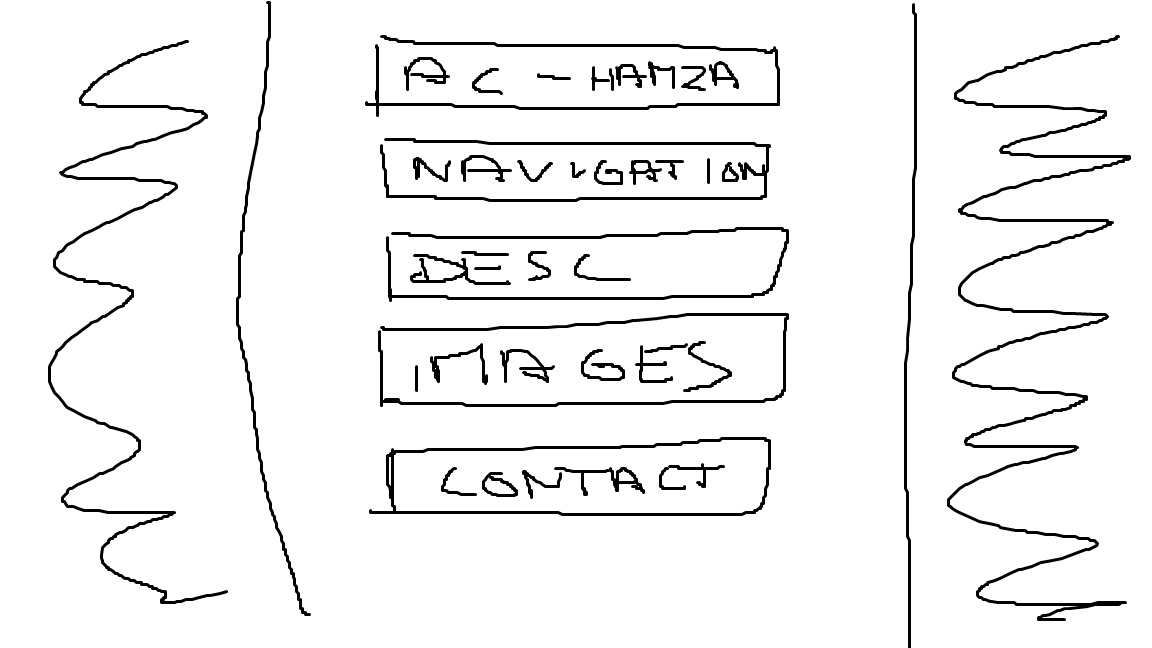 AC - HAMZA
NAVIGATION
DESC
IMAGES
CONTACT